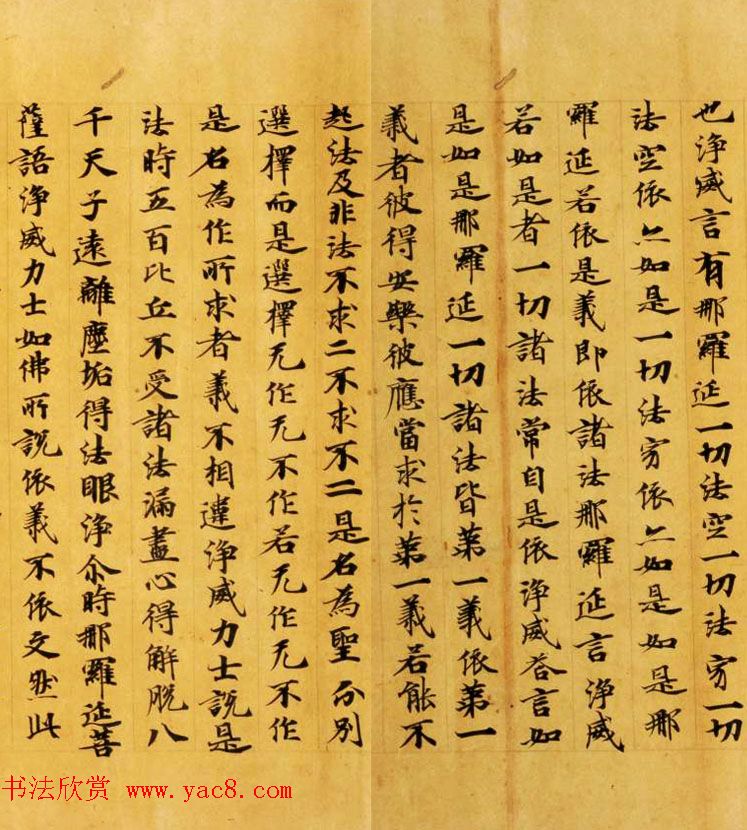 也淨威言有那羅延一切法空一切法穷一切
法空依亦如是一切法穷依亦如是如是那
羅延若依是義即依諸法那羅延言淨威
若如是者一切諸法常自是依淨威荅言如
是如是那羅延一切諸法皆第一義依第一
義者彼得安樂彼應當求於第一義若能不
起法及非法不求二不求不二是名為聖分別
選擇而是選擇无作无不作若无作无不作
是名為作所求者義不相違淨威力士說是
法時五百比丘不受諸法漏盡心得解脫八
千天子遠離塵垢得法眼淨尒時那羅延菩
薩語淨威力士如佛所說依義不依文然此
书法欣赏 www.yac8.com